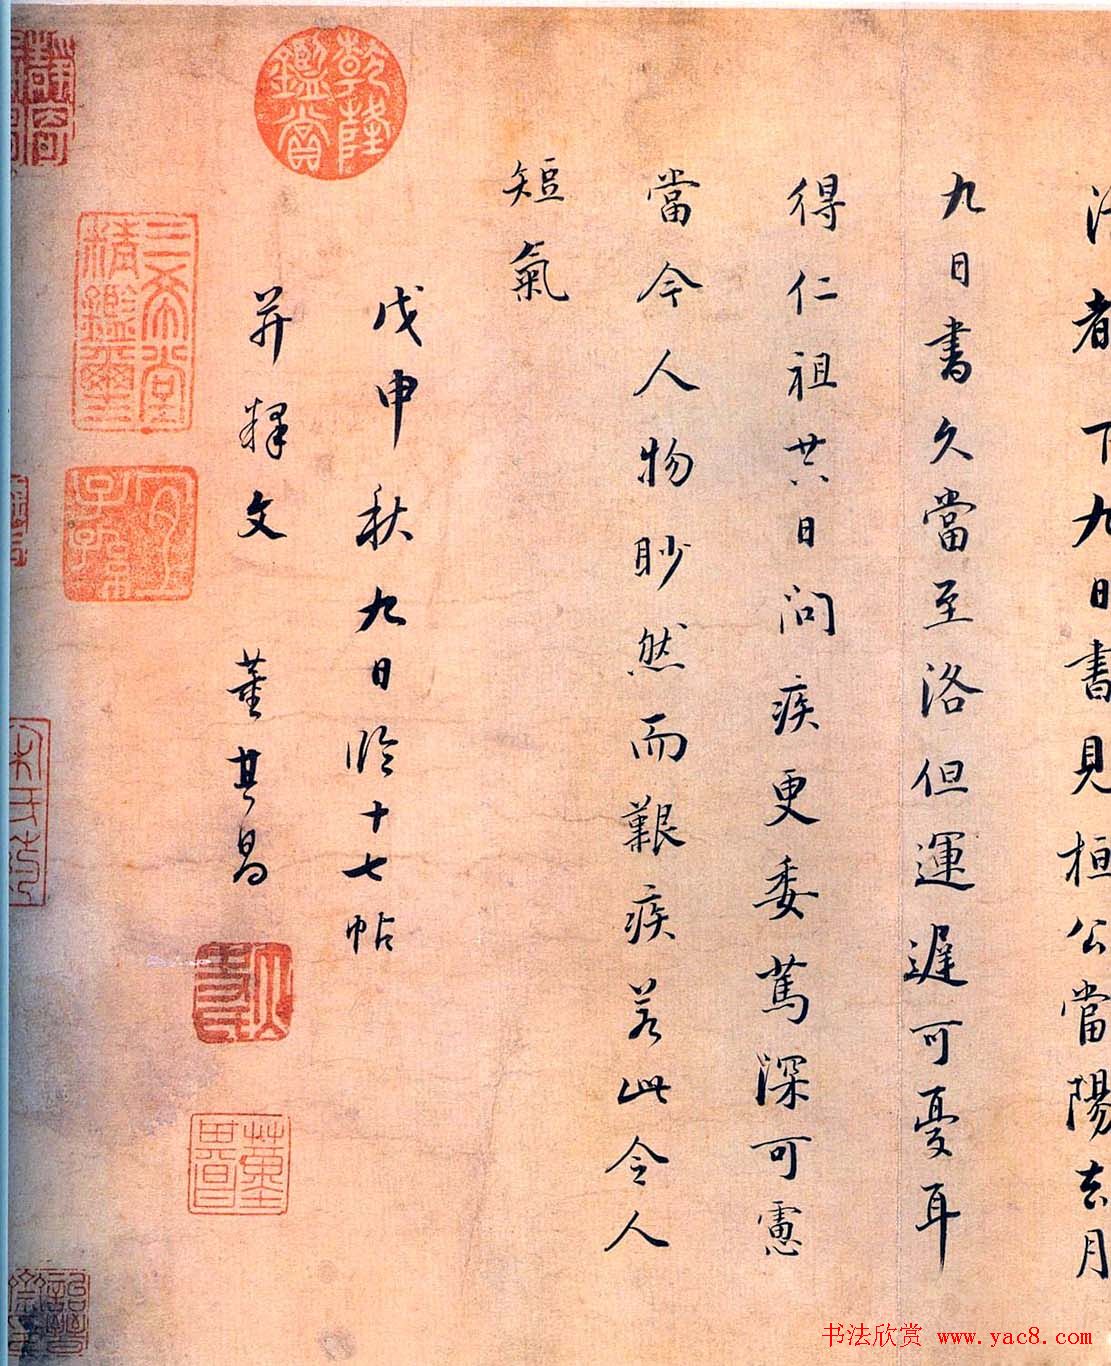 洛者下九日書見桓公當陽去月
九日書久當至洛但運遲可憂耳
得仁祖廿六日問疾更委篤深可慮
當今人物眇然而艱疾若此令人
短氣
戊申秋九日臨十七帖
并釋文 董其昌
乾隆鑑賞
三希堂精鑑璽
宜子孫
董其昌
书法欣赏 www.yac8.com